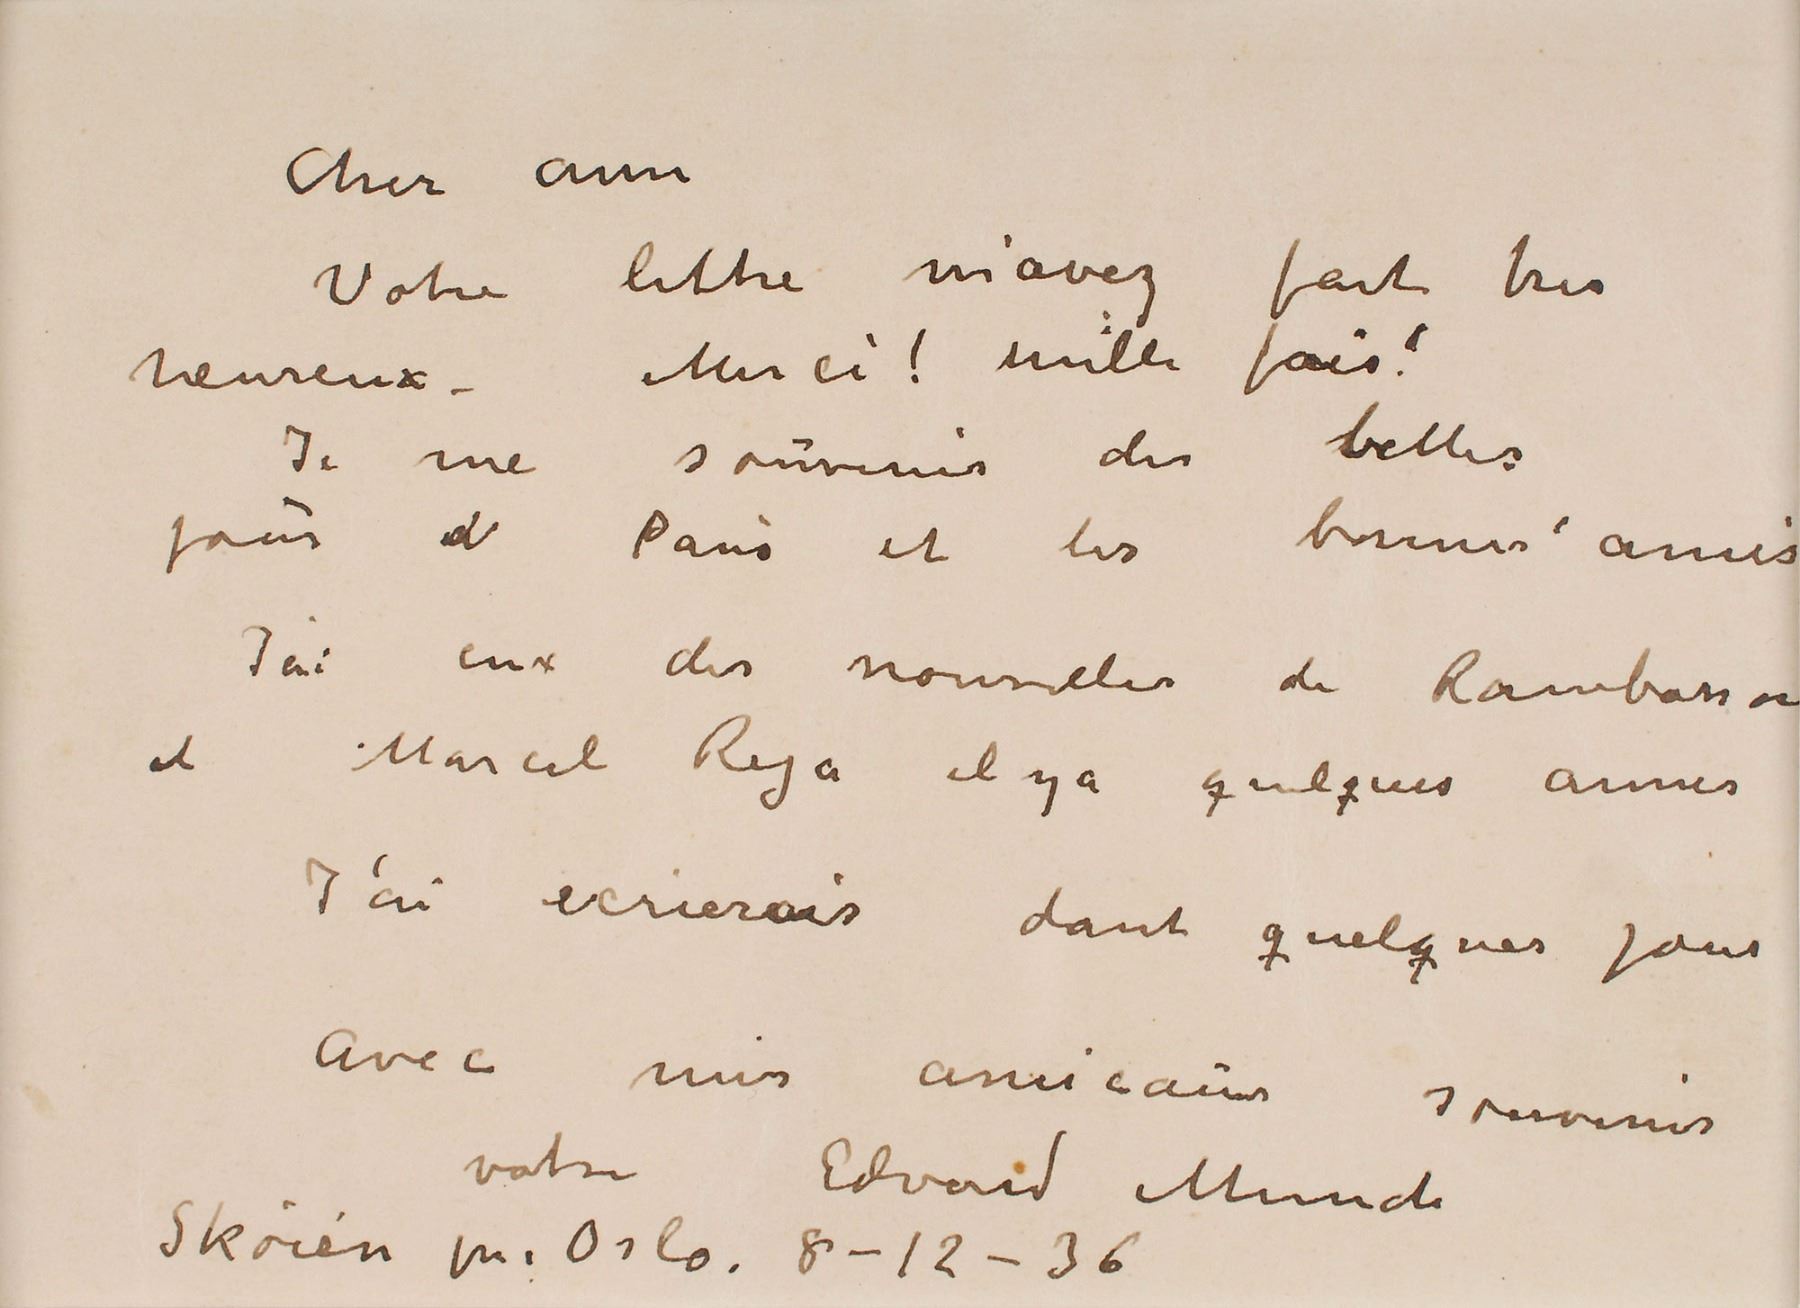 Cher ami
Votre lettre m'avez fait tres
heureux - Merci! mille fois!
Je me souvenis des belles
jours d Paris et les bonnes amis
J'ai eux des nouvelles de Rambosson
et Marcel Reja il ya quelques annes
J'ai ecrierais dant quelques jours
Avec mes amicaux souvenirs
votre Edvard Munch
Skøien pr. Oslo. 8-12-36